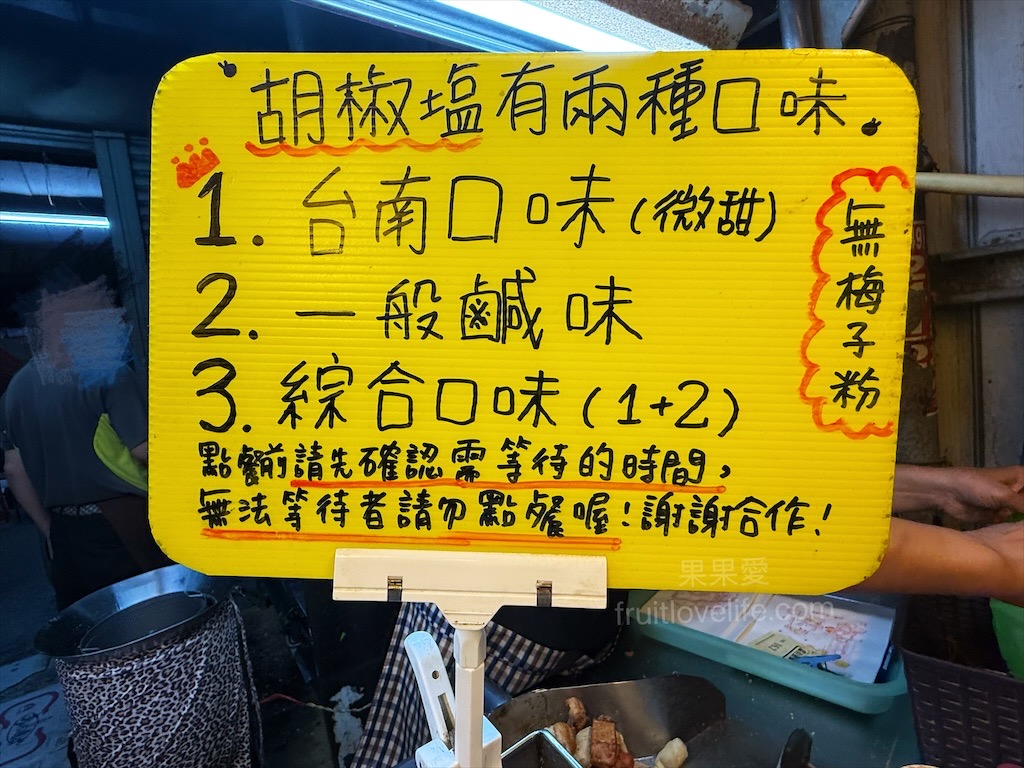 胡椒塩有兩種口味
1. 台南口味(微甜)
2. 一般鹹味
3. 綜合口味(1+2)
無梅子粉
點餐前請先確認需等待的時間,
無法等待者請勿點餐喔!謝謝合作!
果果愛
fruitlovelife.com